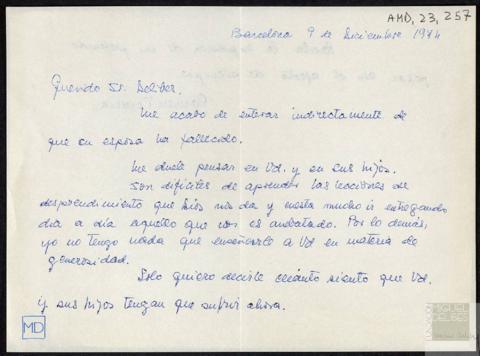 AMD, 23, 257
Barcelona 9 de Diciembre 1974
Querido Sr. Delibes.
Me acabo de enterar indirectamente de
que su esposa ha fallecido.
Me duele pensar en Vd. y en sus hijos.
Son difíciles de aprender las lecciones de
desprendimiento que Dios nos da y cuesta mucho ir entregando
día a día aquello que nos es arrebatado. Por lo demás,
yo no tengo nada que enseñarle a Vd en materia de
generosidad.
Solo quiero decirle cuánto siento que Vd.
y sus hijos tengan que sufrir ahora.
MD
FUNDACIÓN
MIGUEL
DELIBES